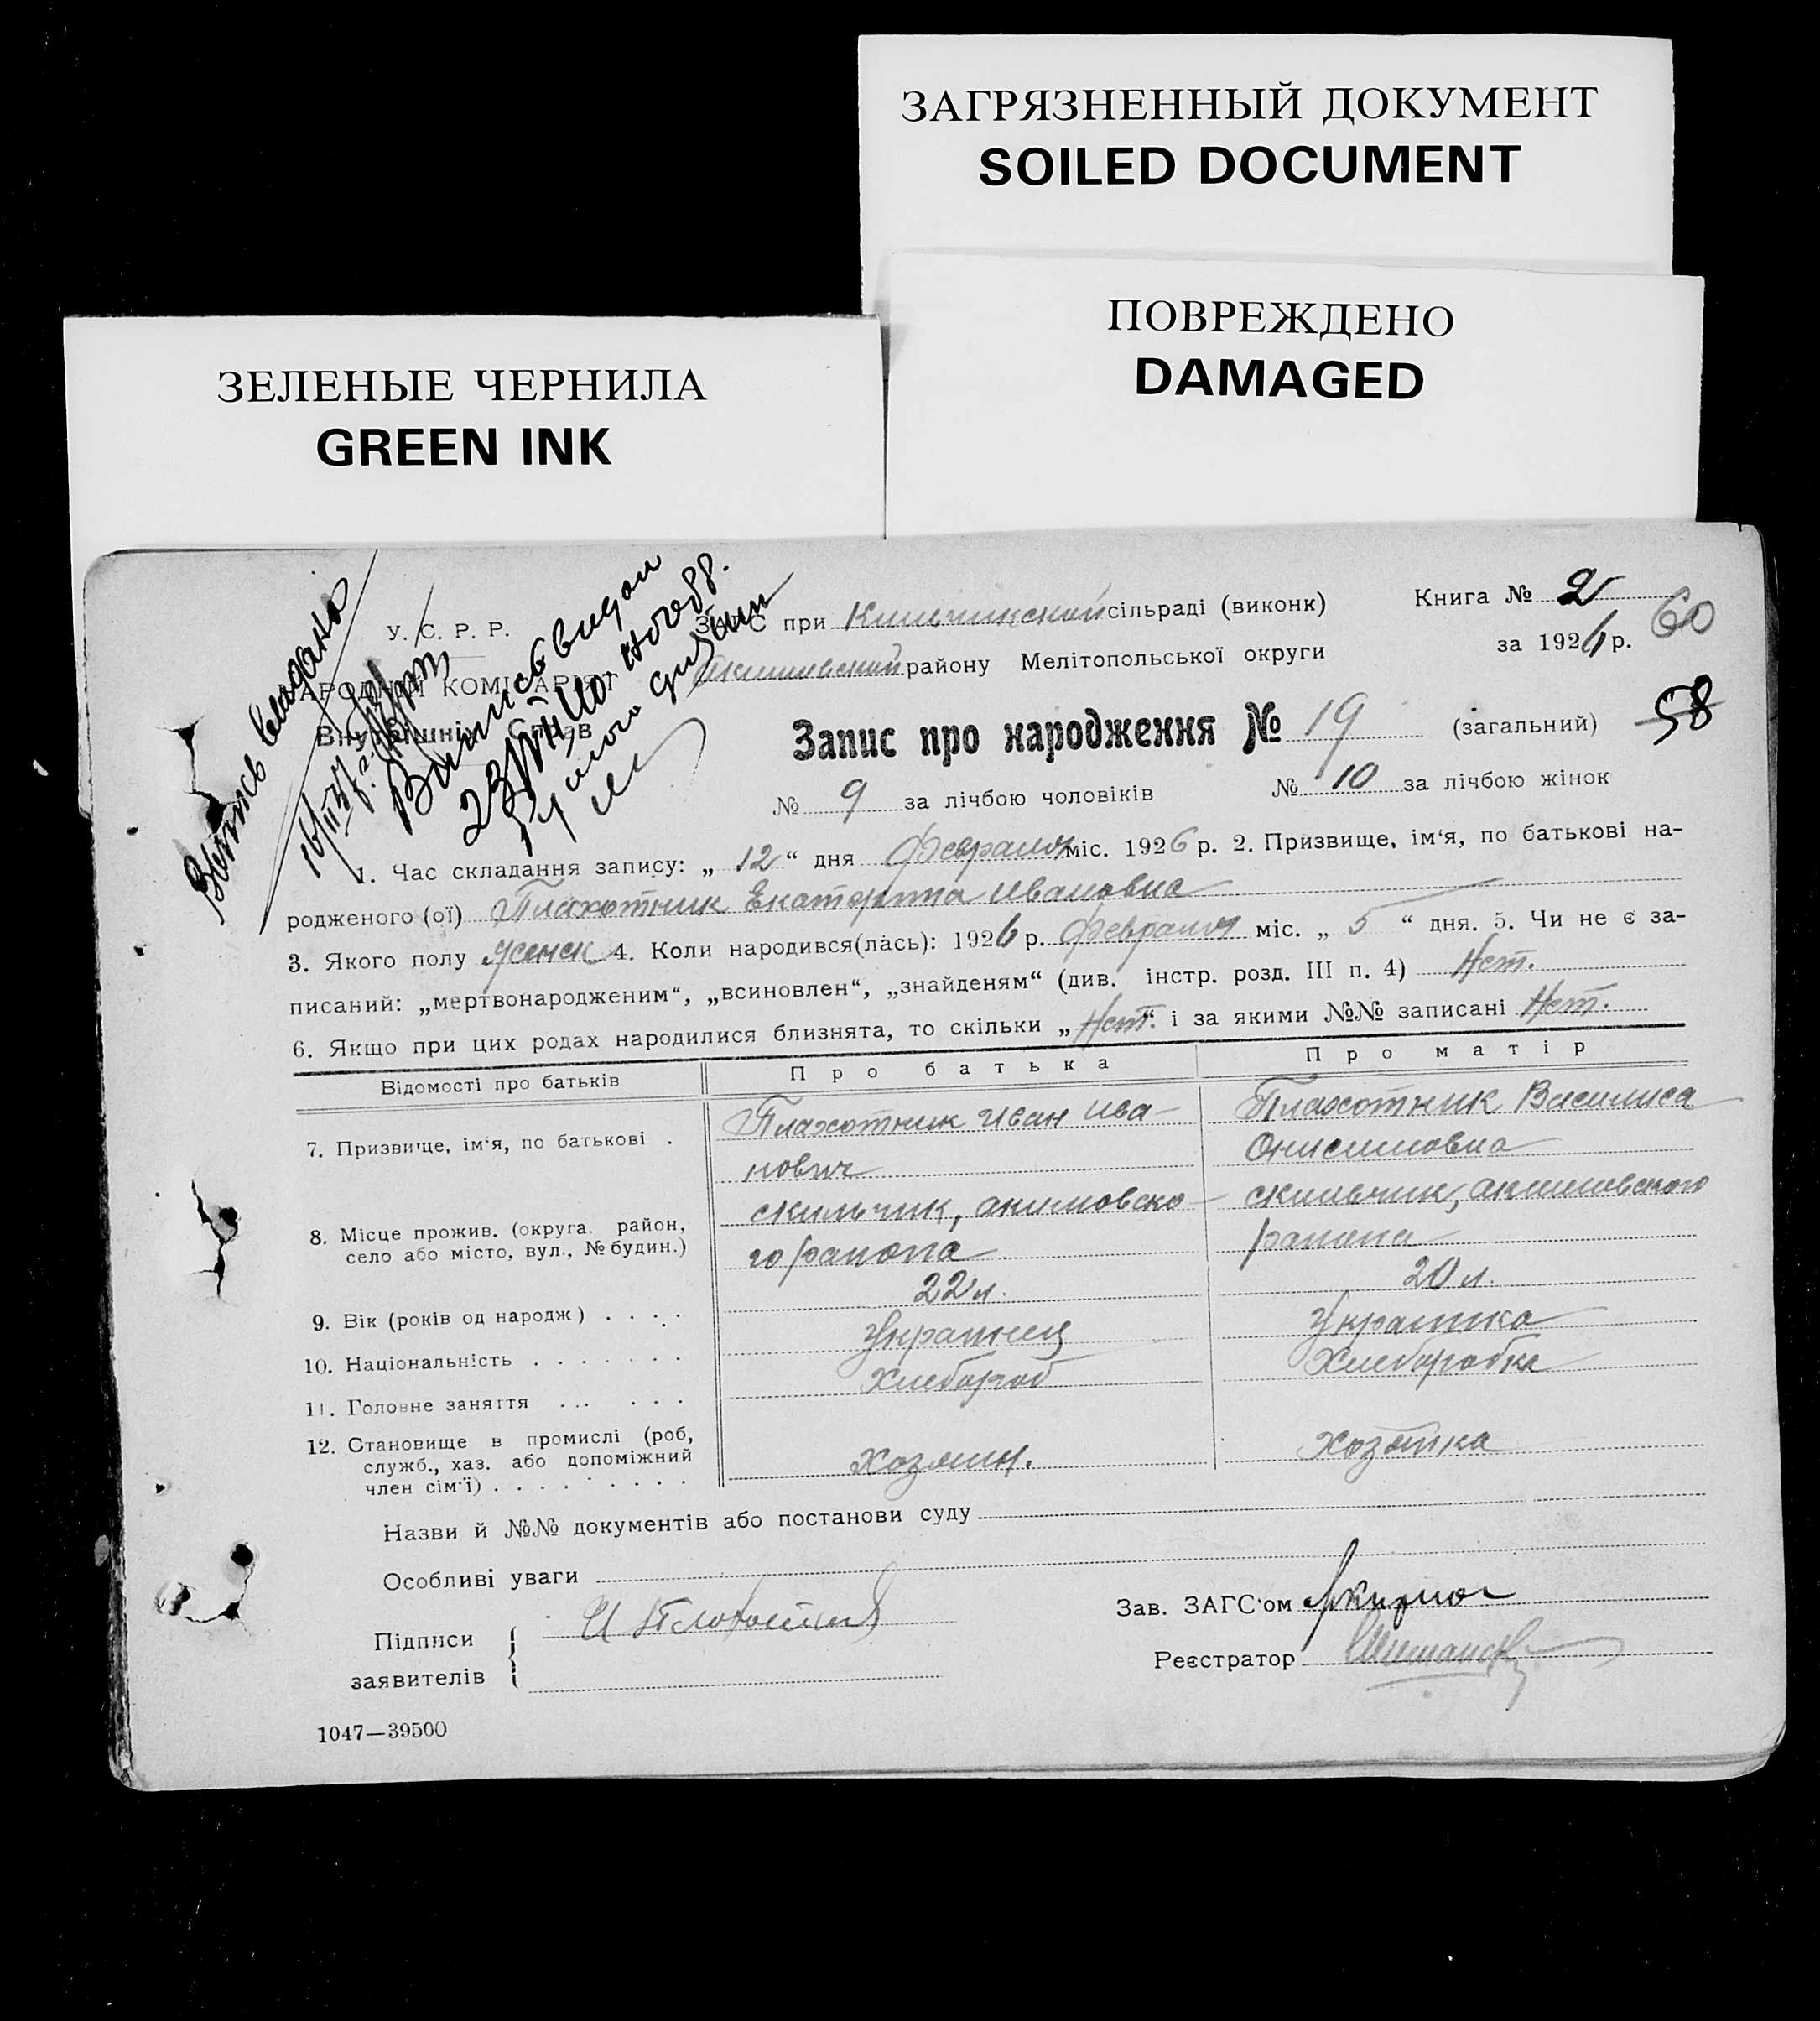 ЗАГРЯЗНЕННЫЙ ДОКУМЕНТ
SOILED DOCUMENT
ПОВРЕЖДЕНО
DAMAGED
ЗЕЛЕНЫЕ ЧЕРНИЛА
GREEN INK
Витяг видано
У. С. Р. Р.
НАРОДНИЙ КОМІСАРІЯТ
Внутрішніх Справ
ЗАГС при Кильчинской сільраді (виконк)
Акимовский району Мелітопольської округи
Книга № 2
за 1926 р. 60
58
Запис про народження № 19 (загальний)
№ 9 за лічбою чоловіків № 10 за лічбою жінок
1. Час складання запису: „ 12 “ дня Февраля міс. 1926 р. 2. Призвище, ім‘я, по батькові на-
родженого (ої) Плахотник Екатерина Ивановна
3. Якого полу женск 4. Коли народився(лась): 1926 р. Февраля міс. „ 5 “ дня. 5. Чи не є за-
писаний: „мертвонародженим“, „всиновлен“, „знайденям“ (див. інстр. розд. III п. 4) Нет.
6. Якщо при цих родах народилися близнята, то скільки „ Нет. “ і за якими №№ записані Нет.
Відомості про батьків Про батька Про матір
7. Призвище, ім‘я, по батькові . Плахотник Иван Ива- Плахотник Василиса
нович Онисимовна
8. Місце прожив. (округа, район, село або місто, вул., № будин.) с Кильчик, Акимовско- с Кильчик, Акимовского
го района района
9. Вік (років од народж) . . . . 22 л. 20 л.
10. Національність . . . . . . . Украинец Украинка
11. Головне заняття ... ... Хлебороб Хлеборобка
12. Становище в промислі (роб,
служб., хаз. або допоміжний
член сім‘ї) . . . . . . . . хозяин. хозяйка
Назви й №№ документів або постанови суду
Особливі уваги
Підписи
заявителів
Зав. ЗАГС‘ом
Реєстратор
1047—39500